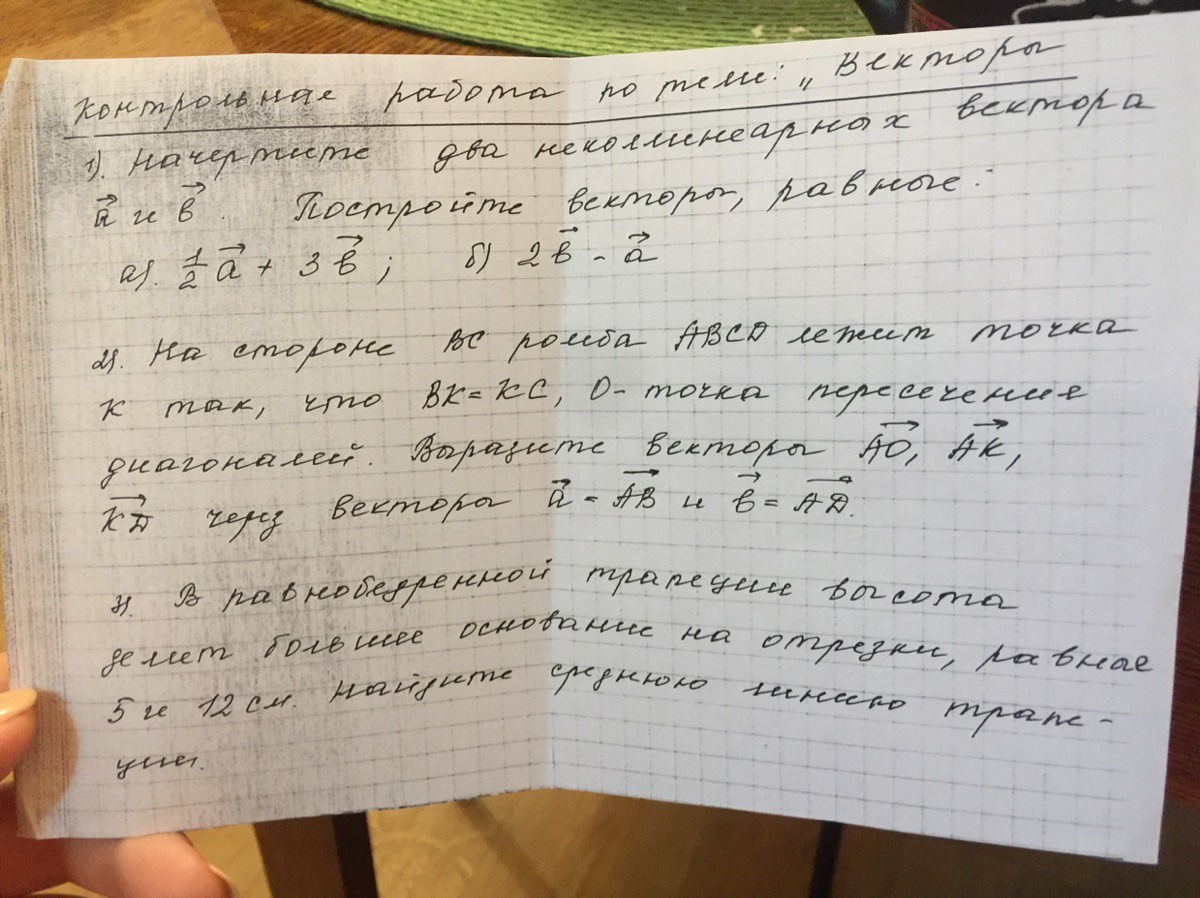 Контрольная работа по теме: „Векторы
1). Начертите два неколлинеарных вектора
a⃗ и b⃗. Постройте векторы, равные:
а). 1/2 a⃗ + 3b⃗ ; б) 2b⃗ - a⃗
2). На стороне BC ромба ABCD лежит точка
K так, что BK=KC, O- точка пересечения
диагоналей. Выразите векторы A͞O⃗, A͞K⃗,
K͞D⃗ через векторы a⃗ = A͞B⃗ и b⃗ = A͞D⃗.
3). В равнобедренной трапеции высота
делит большее основание на отрезки, равные
5 и 12 см. Найдите среднюю линию трапе-
ции.